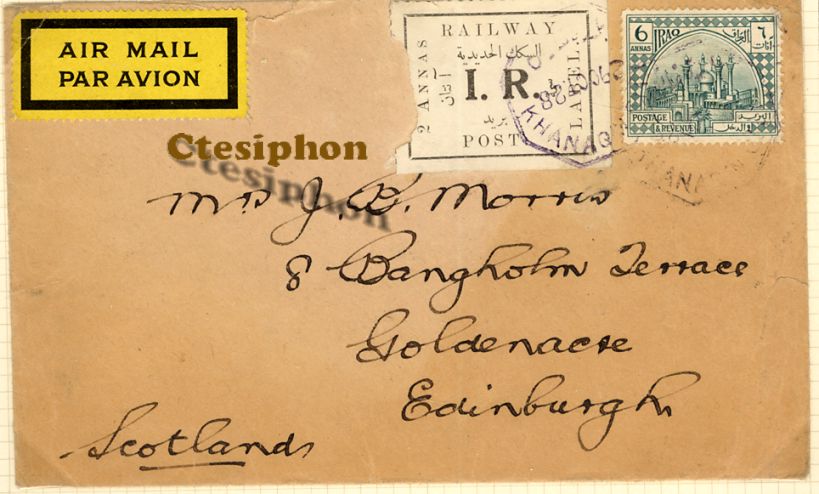 AIR MAIL
PAR AVION
RAILWAY
السكك الحديدية
2 ANNAS
I. R.
LABEL
بريد
POST
28
KHANAQ
6
ANNAS
IRAQ
العراق
٦
انات
POSTAGE
& REVENUE
البريد
و الدخل
Ctesiphon
Mrs J. B. Morris
8 Bangholm Terrace
Goldenacre
Edinburgh
Scotland